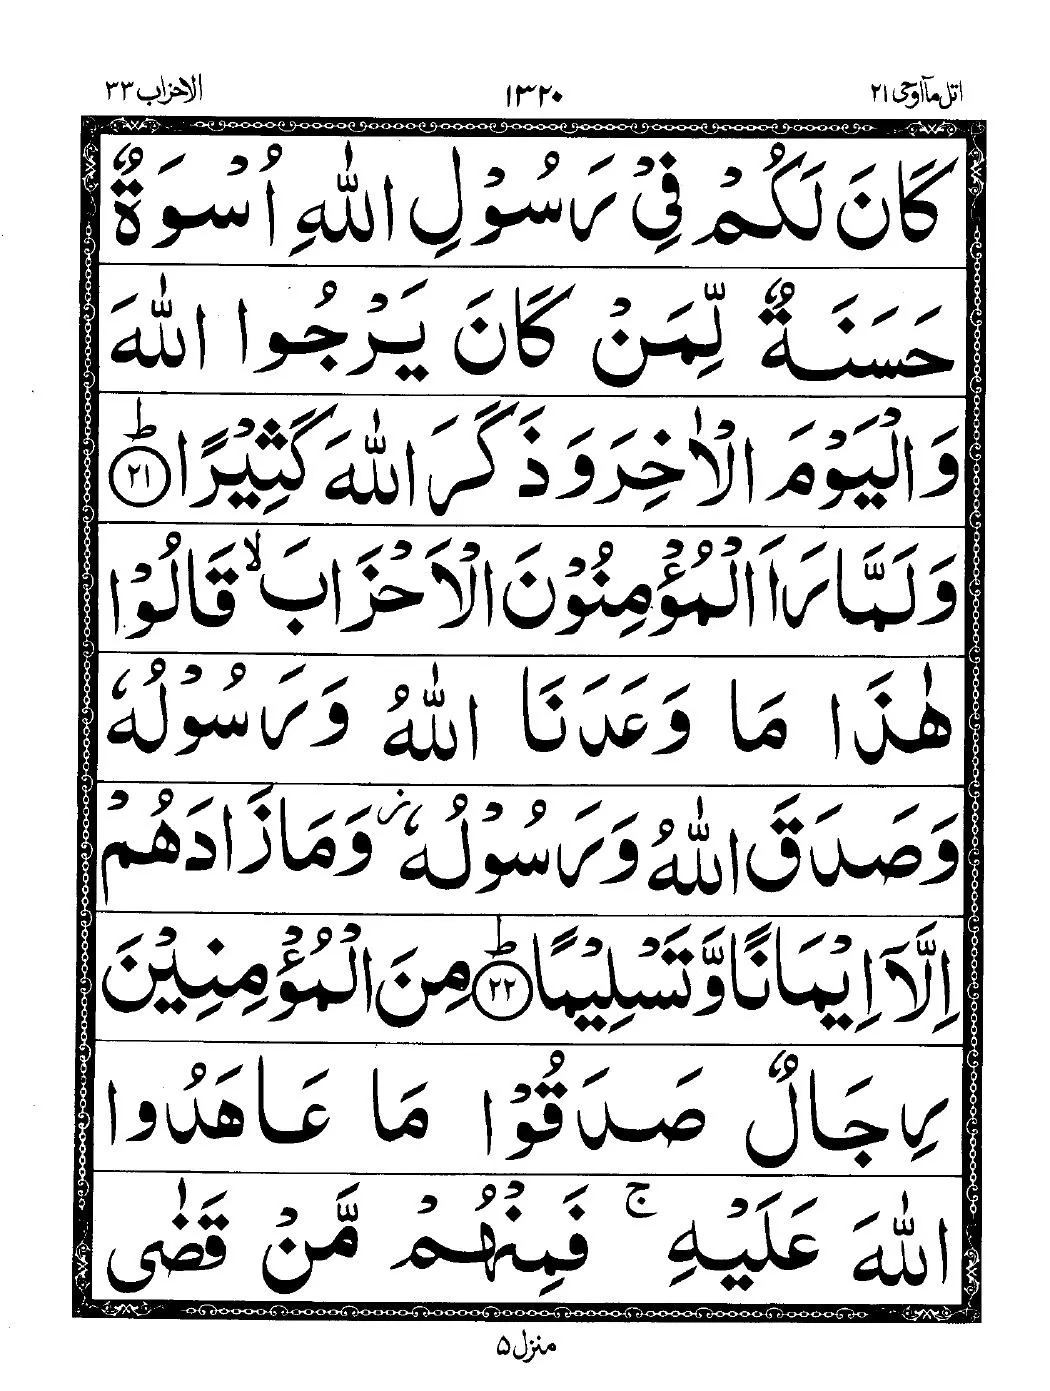 اتل مآ اوحی ۲۱ ۱۳۲۰ الاحزاب ۳۳
كَانَ لَكُمْ فِیْ رَسُوْلِ اللّٰهِ اُسْوَةٌ
حَسَنَةٌ لِّمَنْ كَانَ یَرْجُوا اللّٰهَ
وَالْیَوْمَ الْاٰخِرَ وَذَكَرَ اللّٰهَ كَثِیْرًا ؕ﴿۲۱﴾
وَلَمَّا رَاَ الْمُؤْمِنُوْنَ الْاَحْزَابَ ۙ قَالُوْا
هٰذَا مَا وَعَدَنَا اللّٰهُ وَرَسُوْلُهٗ
وَصَدَقَ اللّٰهُ وَرَسُوْلُهٗ ؗ وَمَا زَادَهُمْ
اِلَّاۤ اِیْمَانًا وَّتَسْلِیْمًا ؕ﴿۲۲﴾ مِنَ الْمُؤْمِنِیْنَ
رِجَالٌ صَدَقُوْا مَا عَاهَدُوا
اللّٰهَ عَلَیْهِ ۚ فَمِنْهُمْ مَّنْ قَضٰی
منزل ۵